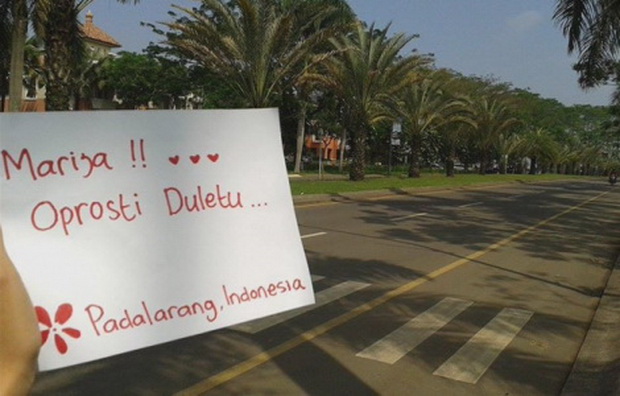 Marija !! ♥ ♥ ♥
Oprosti Duletu...
Padalarang, Indonesia